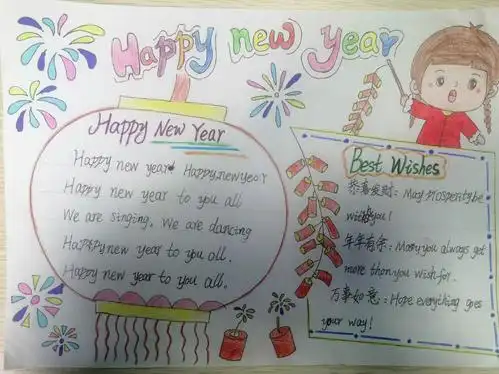 Happy new year
Happy New Year
Happy new year Happy new year
Happy new year to you all
We are singing. We are dancing
Happy new year to you all.
Happy new year to you all.
Best Wishes
恭喜发财: May prosperity be
with you!
年年有余: May you always get
more than you wish for.
万事如意: Hope everything goes
your way!